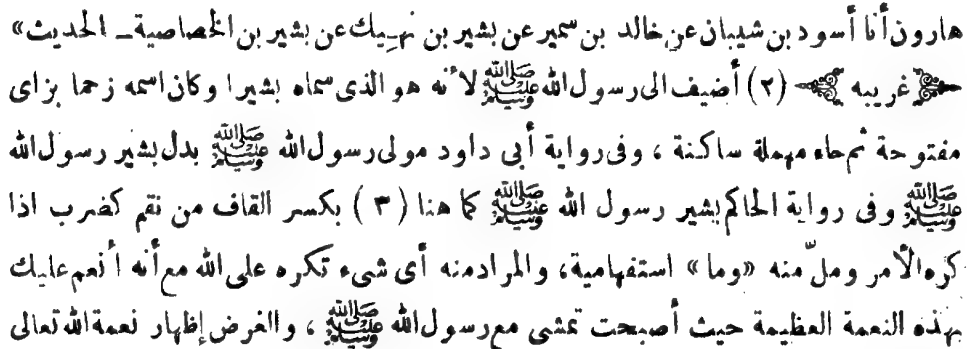 هارون أنا أسود بن شيبان عن خالد بن سمير عن بشير بن نهيك عن بشير بن الخصاصية ــ الحديث»
غريبه (٢) أضيف الى رسول الله ﷺ لأنه هو الذى سماه بشيرا وكان اسمه زحما بزاى
مفتوحة ثم حاء مهملة ساكنة ، وفى رواية أبى داود مولى رسول الله ﷺ بدل بشير رسول الله
ﷺ وفى رواية الحاكم بشير رسول الله ﷺ كما هنا (٣) بكسر القاف من نقم كضرب اذا
كره الأمر وملّ منه «وما» استفهامية، والمراد منه أى شىء تكره على الله مع أنه أنعم عليك
بهذه النعمة العظيمة حيث أصبحت تمشى مع رسول الله ﷺ ، والغرض إظهار نعمة الله تعالى